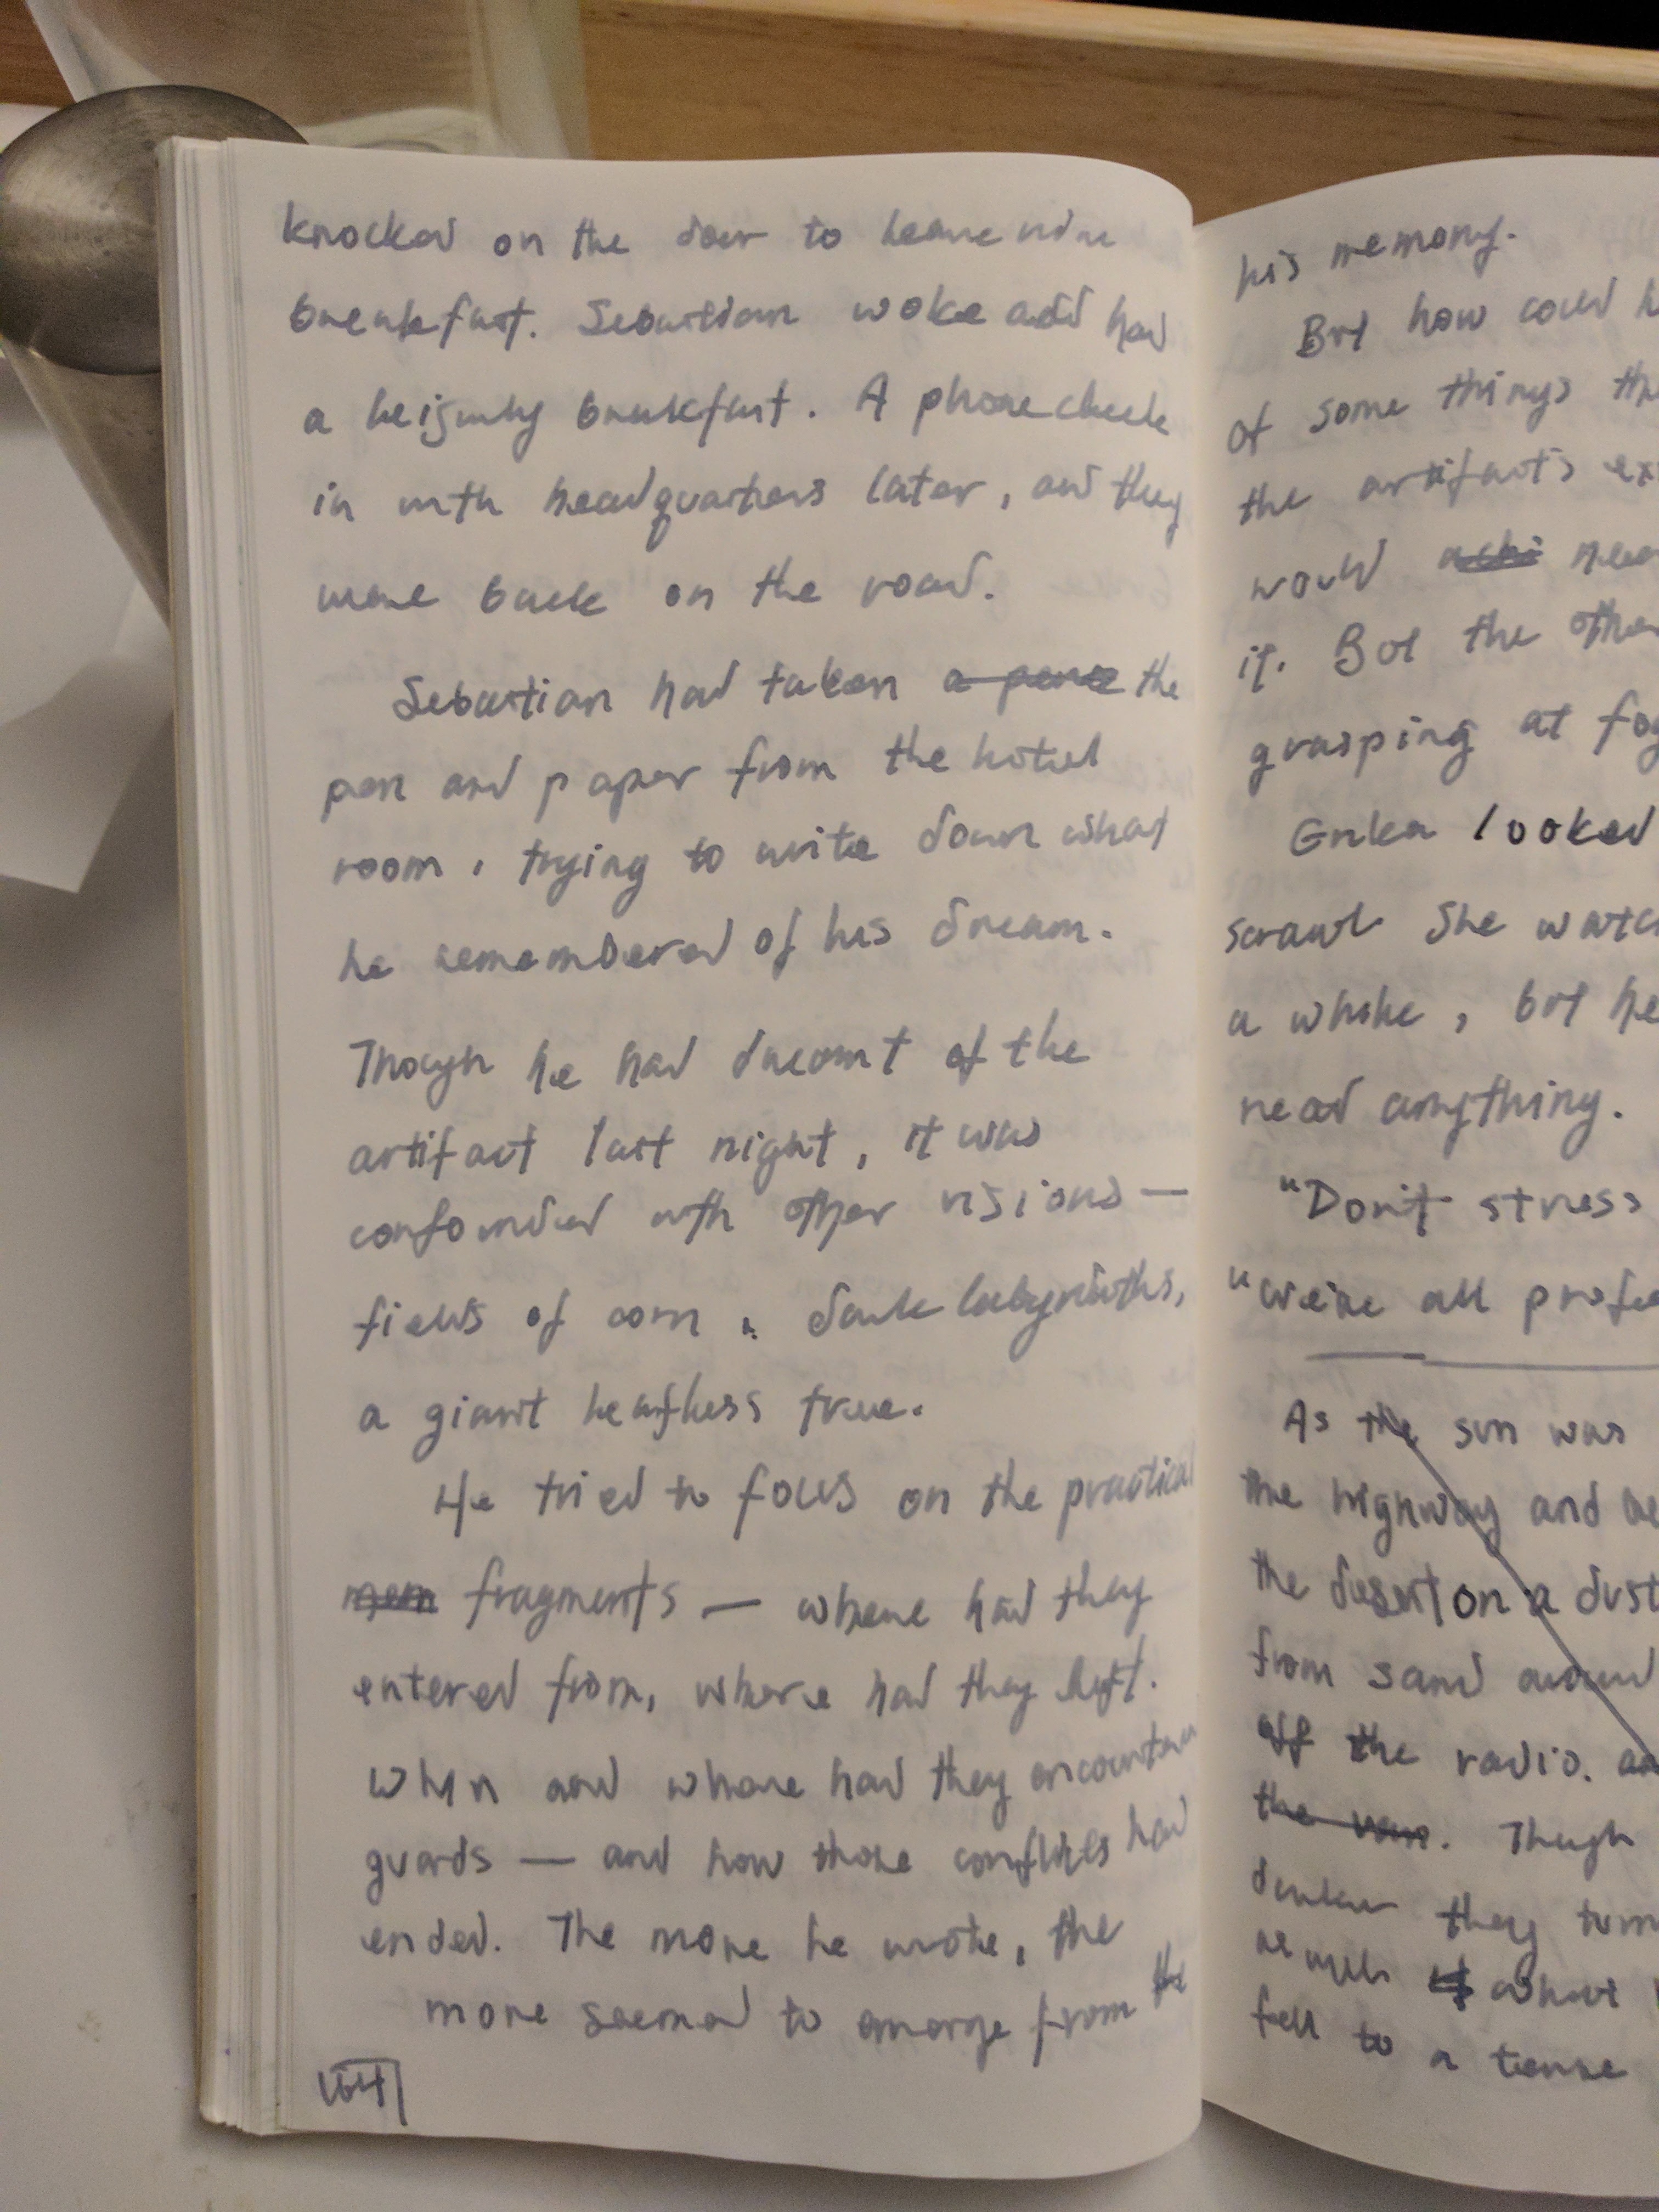 knocked on the door to leave
breakfast. Sebastian woke and had
a leisurely breakfast. A phone check
in with headquarters later, and they
were back on the road.
Sebastian had taken the
pen and paper from the hotel
room, trying to write down what
he remembered of his dream.
Though he had dreamt of the
artifact last night, it was
confounded with other visions —
fields of corn, dark labyrinths,
a giant leafless tree.
He tried to focus on the practical
mem fragments — where had they
entered from, where had they left.
When and where had they encountered
guards — and how those conflicts had
ended. The more he wrote, the
more seemed to emerge from the
his memory.
But how could h
of some things the
the artifact's ex
would
it. But the other
grasping at fog
looked
scrawl She watc
a while, but he
read anything.
"Don't stress
"We're all profe
As the sun was
the highway and
the desert on a dust
from sand around
off the radio. an
the van. Though
darker they turn
what
fell to a tense